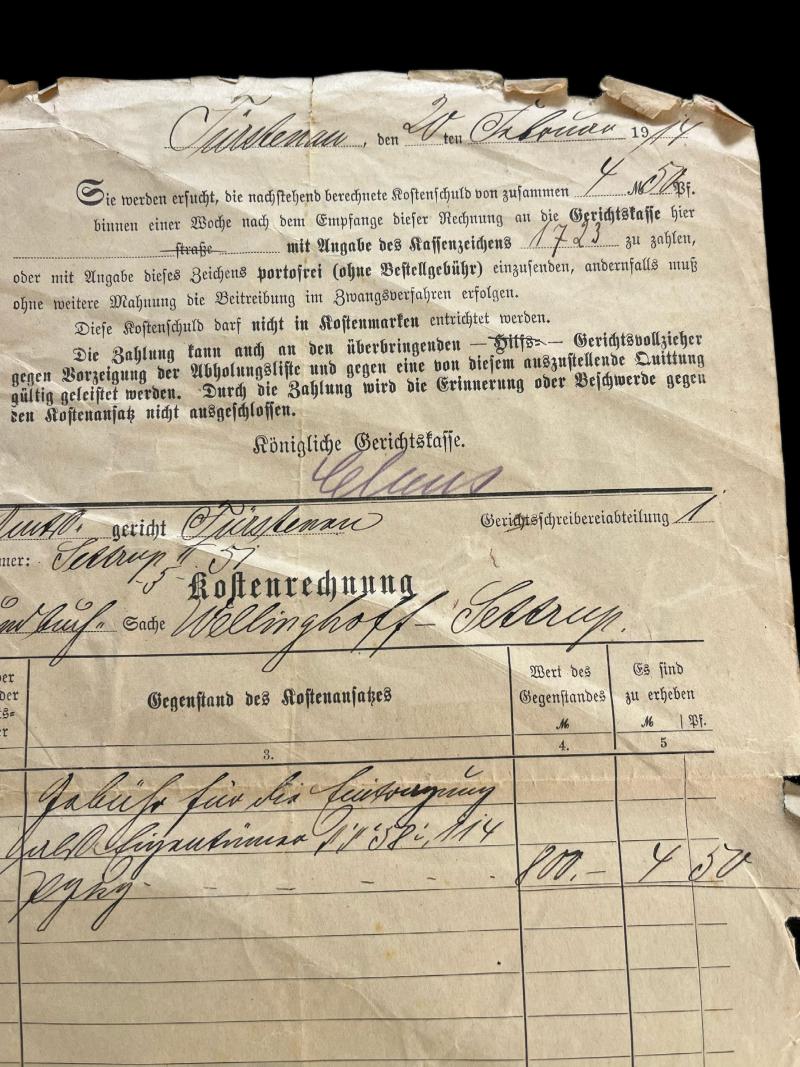 Fürstenau, den 20ten Februar 1914
Sie werden ersucht, die nachstehend berechnete Kostenschuld von zusammen 4 M 50 Pf.
binnen einer Woche nach dem Empfange dieser Rechnung an die Gerichtskasse hier
straße mit Angabe des Kassenzeichens 1723 zu zahlen,
oder mit Angabe dieses Zeichens portofrei (ohne Bestellgebühr) einzusenden, andernfalls muß
ohne weitere Mahnung die Beitreibung im Zwangsverfahren erfolgen.
Diese Kostenschuld darf nicht in Kostenmarken entrichtet werden.
Die Zahlung kann auch an den überbringenden — Hilfs- — Gerichtsvollzieher
gegen Vorzeigung der Abholungsliste und gegen eine von diesem auszustellende Quittung
gültig geleistet werden. Durch die Zahlung wird die Erinnerung oder Beschwerde gegen
den Kostenansatz nicht ausgeschlossen.
Königliche Gerichtskasse.
Amts. gericht Fürstenau Gerichtsschreibereiabteilung 1
mer: Settrup II 51
5
Kostenrechnung
undbuch- Sache Wellinghoff - Settrup.
er
der
ts=
r
Gegenstand des Kostenansatzes
Wert des
Gegenstandes
M
Es sind
zu erheben
M | Pf.
3. 4. 5
Gebühr für die Eintragung
als Eigentümer §§ 58, 114
800.- 4 50